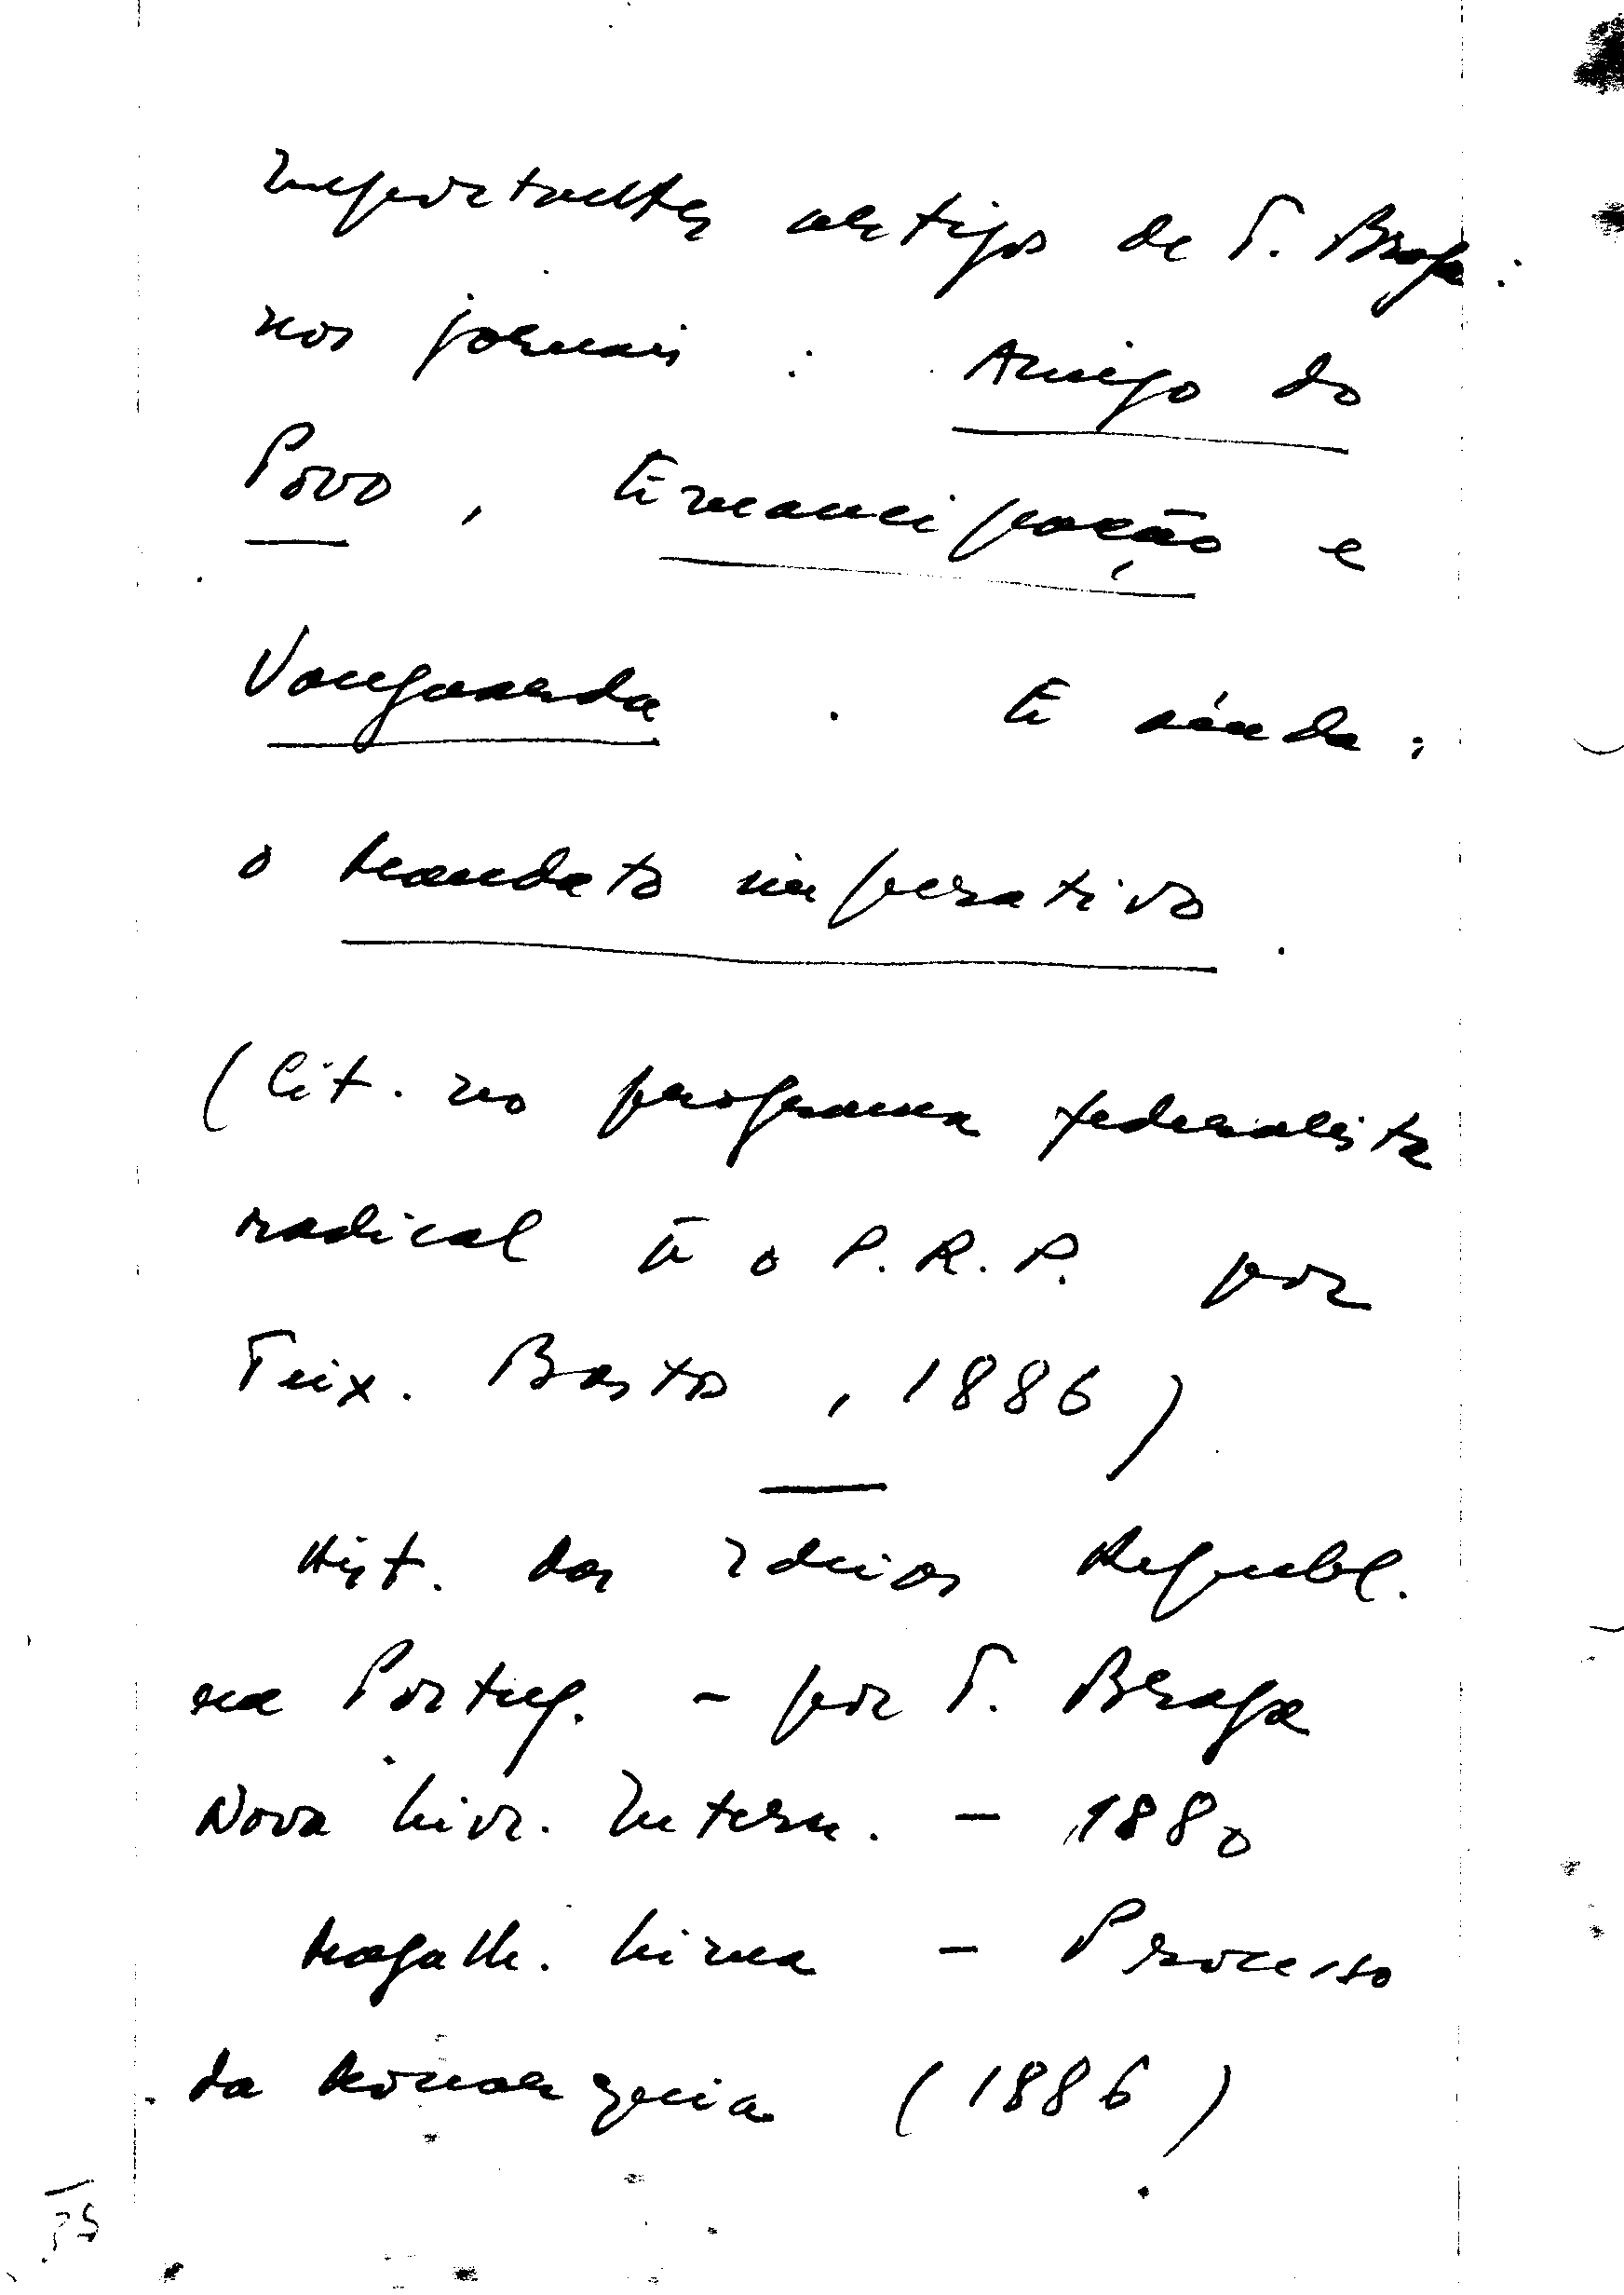 Importantes artigos de T. Braga:
nos jornais : Amigo do
Povo, Emancipação e
Vanguarda. E ainda:
o mandato imperativo.
(Cit. no programa federalista
radical e o P.R.P. por
Teix. Bastos, 1886)
Hist. das Ideias Republ.
em Portug. - por T. Braga
Nova Livr. Intern. - 1880
Magalh. Lima - Processo
da Monarquia (1886)